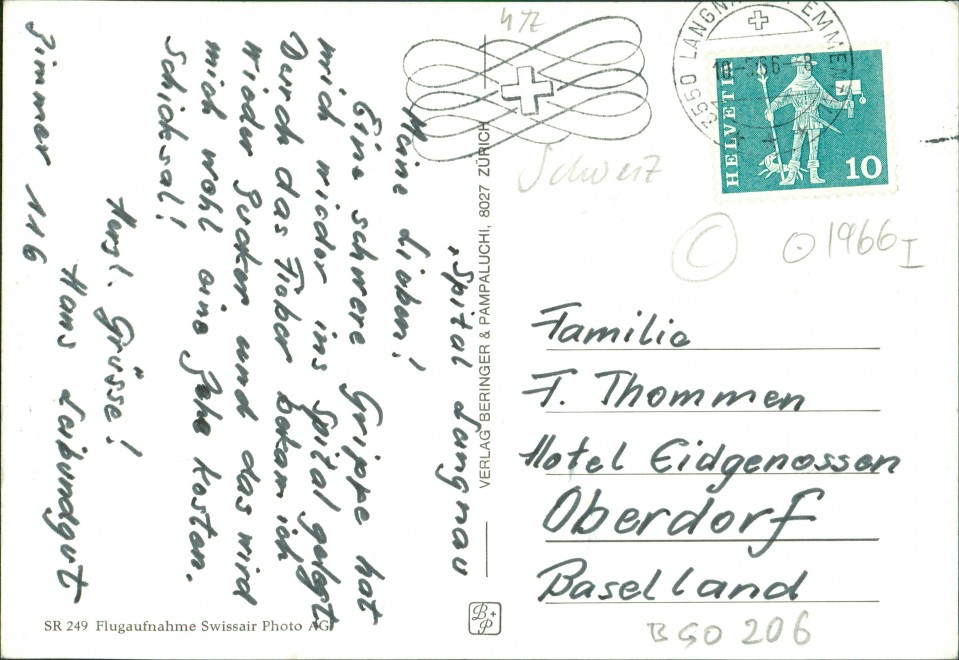 Spital Langnau
Meine Lieben!
Eine schwere Grippe hat
mich wieder ins Spital gelegt
Durch das Fieber bekam ich
wieder Zucker und das wird
mich wohl eine Zehe kosten.
Schicksal!
Herzl. Grüsse!
Hans Leibundgut
Zimmer 116
SR 249 Flugaufnahme Swissair Photo AG
VERLAG BERINGER & PAMPALUCHI, 8027 ZÜRICH
B+P
Schweiz
3550 LANGNAU
HELVETIA
10
1966 I
Familie
F. Thommen
Hotel Eidgenossen
Oberdorf
Baselland
BGO 206